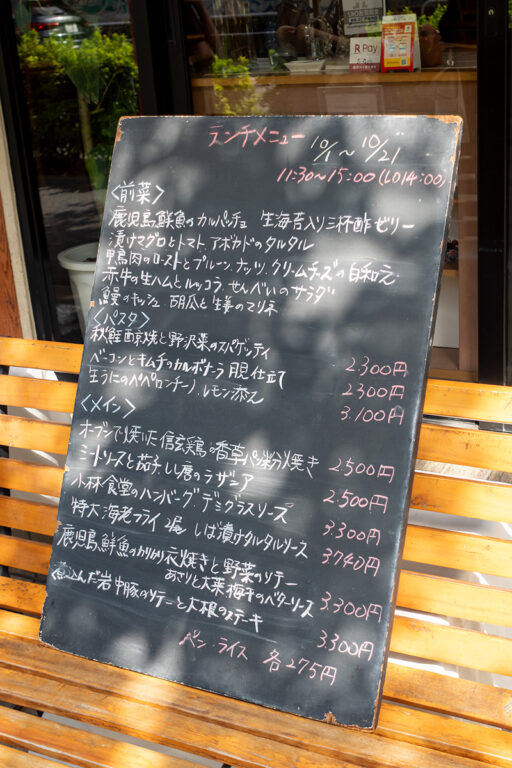 R Pay
ランチメニュー 10/1〜10/21
11:30〜15:00(LO14:00)
<前菜>
鹿児島鮮魚のカルパッチョ 生海苔入り三杯酢ゼリー
漬けマグロとトマト、アボカドのタルタル
鴨肉のローストとプルーン、ナッツ、クリームチーズの白和え
赤牛の生ハムとルッコラ、せんべいのサラダ
鰻のキッシュ 胡瓜と生姜のマリネ
<パスタ>
秋鮭西京焼と野沢菜のスパゲッティ 2.300円
ベーコンとキムチのカルボナーラ 仕立て 2300円
生うにのペペロンチーノ、レモン添え 3,100円
<メイン>
オーブンで焼いた信玄鶏の香草パン粉焼き 2500円
ミートソースと茄子 しし唐のラザニア 2.500円
小林食堂のハンバーグ・デミグラスソース 3.300円
特大海老フライ2尾 しば漬けタルタルソース 3.740円
鹿児島鮮魚のカリカリ衣焼きと野菜のソテー
あさりと大葉 梅干のバターソース 3.300円
煮込んだ岩中豚のソテーと大根のステーキ 3.300円
パン・ライス 各275円